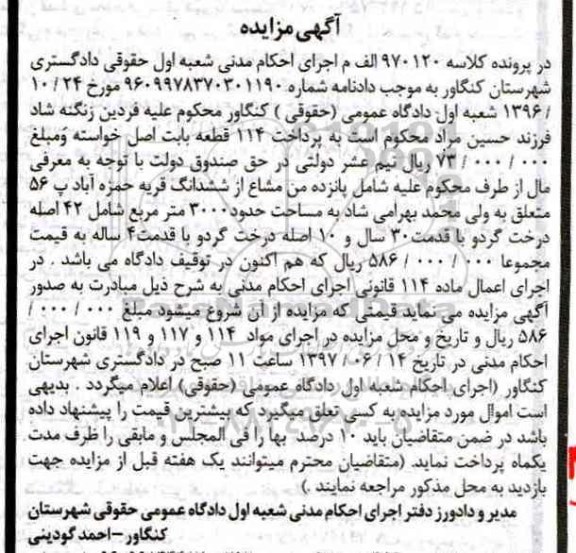 آگهی مزایده
در پرونده کلاسه ۹۷۰۱۲۰ الف م اجرای احکام مدنی شعبه اول حقوقی دادگستری
شهرستان کنگاور به موجب دادنامه شماره ۹۶۰۹۹۷۸۳۷۰۳۰۱۱۹۰ مورخ ۲۴ / ۱۰
/ ۱۳۹۶ شعبه اول دادگاه عمومی (حقوقی ) کنگاور محکوم علیه فردین زنگنه شاد
فرزند حسین مراد محکوم است به پرداخت ۱۱۴ قطعه بابت اصل خواسته ومبلغ
۰۰۰ / ۰۰۰ / ۷۳ ریال نیم عشر دولتی در حق صندوق دولت با توجه به معرفی
مال از طرف محکوم علیه شامل پانزده من مشاع از ششدانگ قریه حمزه آباد پ ۵۶
متعلق به ولی محمد بهرامی شاد به مساحت حدود ۳۰۰۰ متر مربع شامل ۴۲ اصله
درخت گردو با قدمت ۳۰ سال و ۱۰ اصله درخت گردو با قدمت۴ ساله به قیمت
مجموعا ۰۰۰ / ۰۰۰ / ۵۸۶ ریال که هم اکنون در توقیف دادگاه می باشد . در
اجرای اعمال ماده ۱۱۴ قانونی اجرای احکام مدنی به شرح ذیل مبادرت به صدور
آگهی مزایده می نماید قیمتی که مزایده از آن شروع میشود مبلغ ۰۰۰ / ۰۰۰ /
۵۸۶ ریال و تاریخ و محل مزایده در اجرای مواد ۱۱۴ و ۱۱۷ و ۱۱۹ قانون اجرای
احکام مدنی در تاریخ ۱۴ / ۰۶ / ۱۳۹۷ ساعت ۱۱ صبح در دادگستری شهرستان
کنگاور (اجرای احکام شعبه اول دادگاه عمومی (حقوقی) اعلام میگردد . بدیهی
است اموال مورد مزایده به کسی تعلق میگیرد که بیشترین قیمت را پیشنهاد داده
باشد در ضمن متقاضیان باید ۱۰ درصد بها را فی المجلس و مابقی را ظرف مدت
یکماه پرداخت نماید. (متقاضیان محترم میتوانند یک هفته قبل از مزایده جهت
بازدید به محل مذکور مراجعه نمایند .)
مدیر و دادورز دفتر اجرای احکام مدنی شعبه اول دادگاه عمومی حقوقی شهرستان
کنگاور – احمد گودینی